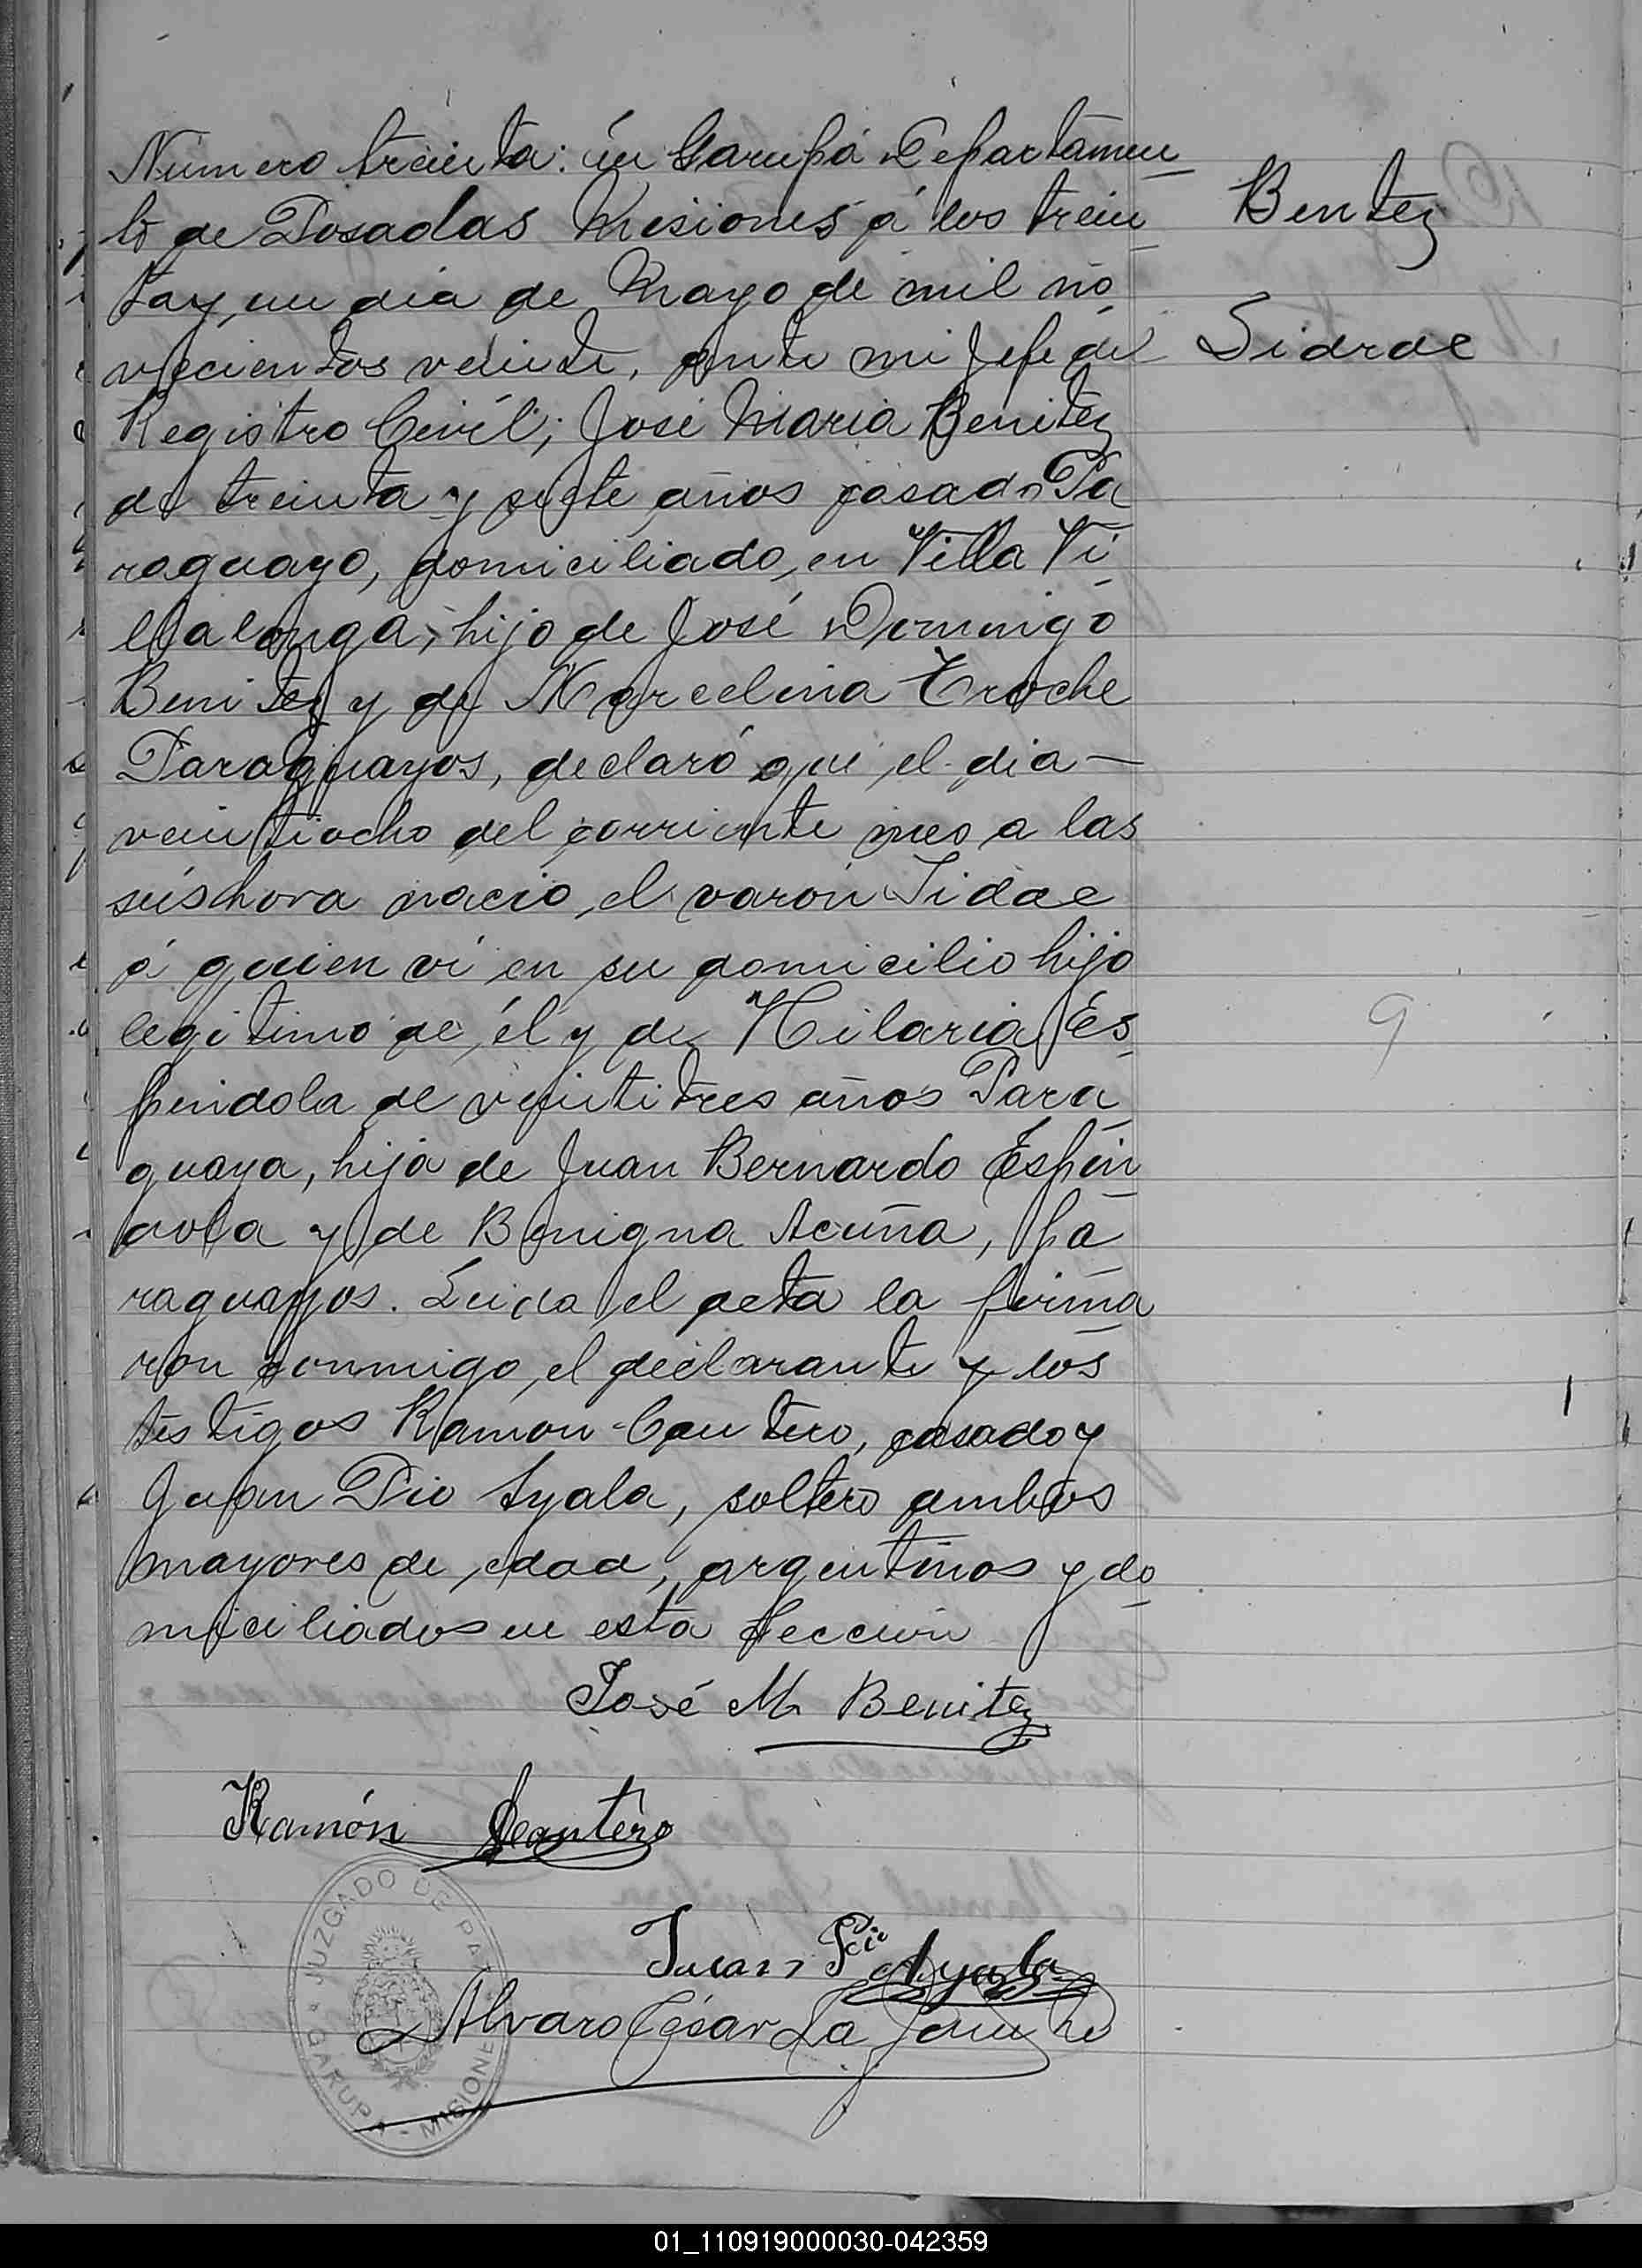 Número treinta: en Garupá Departamen
to de Posadas Misiones á los trein
tay un dia de Mayo de mil no
vecientos veinte, ante mi Jefe del
Registro Civil; José Maria Benitez
de treinta y siete años casado Pa
raguayo, domiciliado, en Villa Vi
llalonga, hijo de José Domingo
Benitez y de Marcelina Troche
Paraguayos, declaró que el dia —
veintiocho del corriente mes a las
seis hora nacio, el varón Sidae
á quien vi en su domicilio hijo
legitimo de él y de Hilaria Es
pindola de veintitres años Para
guaya, hija de Juan Bernardo Espin
dola y de Benigna Acuña, pa
raguayos. Leida el acta la firma
ron conmigo, el declarante y los
testigos Ramón Cantero, casado y
Juan Pio Ayala, soltero ambos
mayores de edad, argentinos y do
miciliados en esta Sección
Benitez
Sidrae
9
José M Benitez
Ramón Cantero
Juan Pio Ayala
Alvaro César La
JUZGADO DE PAZ
GARUPA - MISIONES
01_110919000030-042359